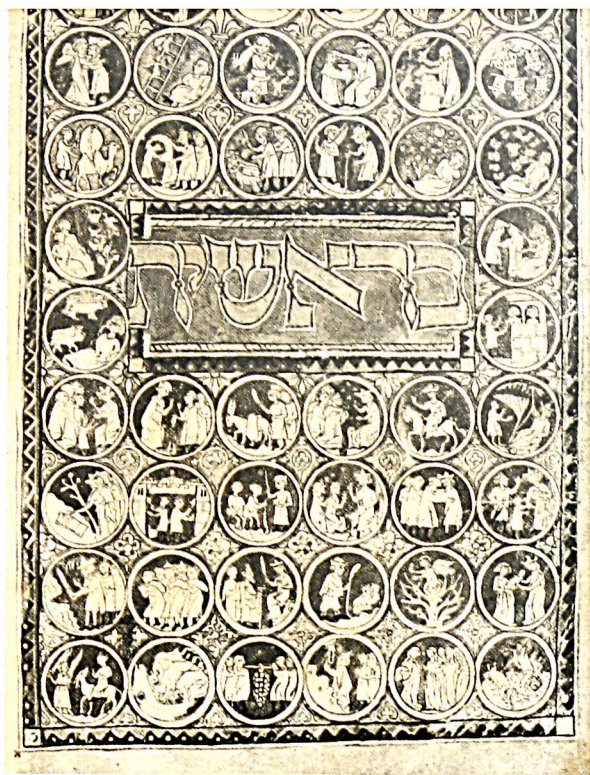 בראשית